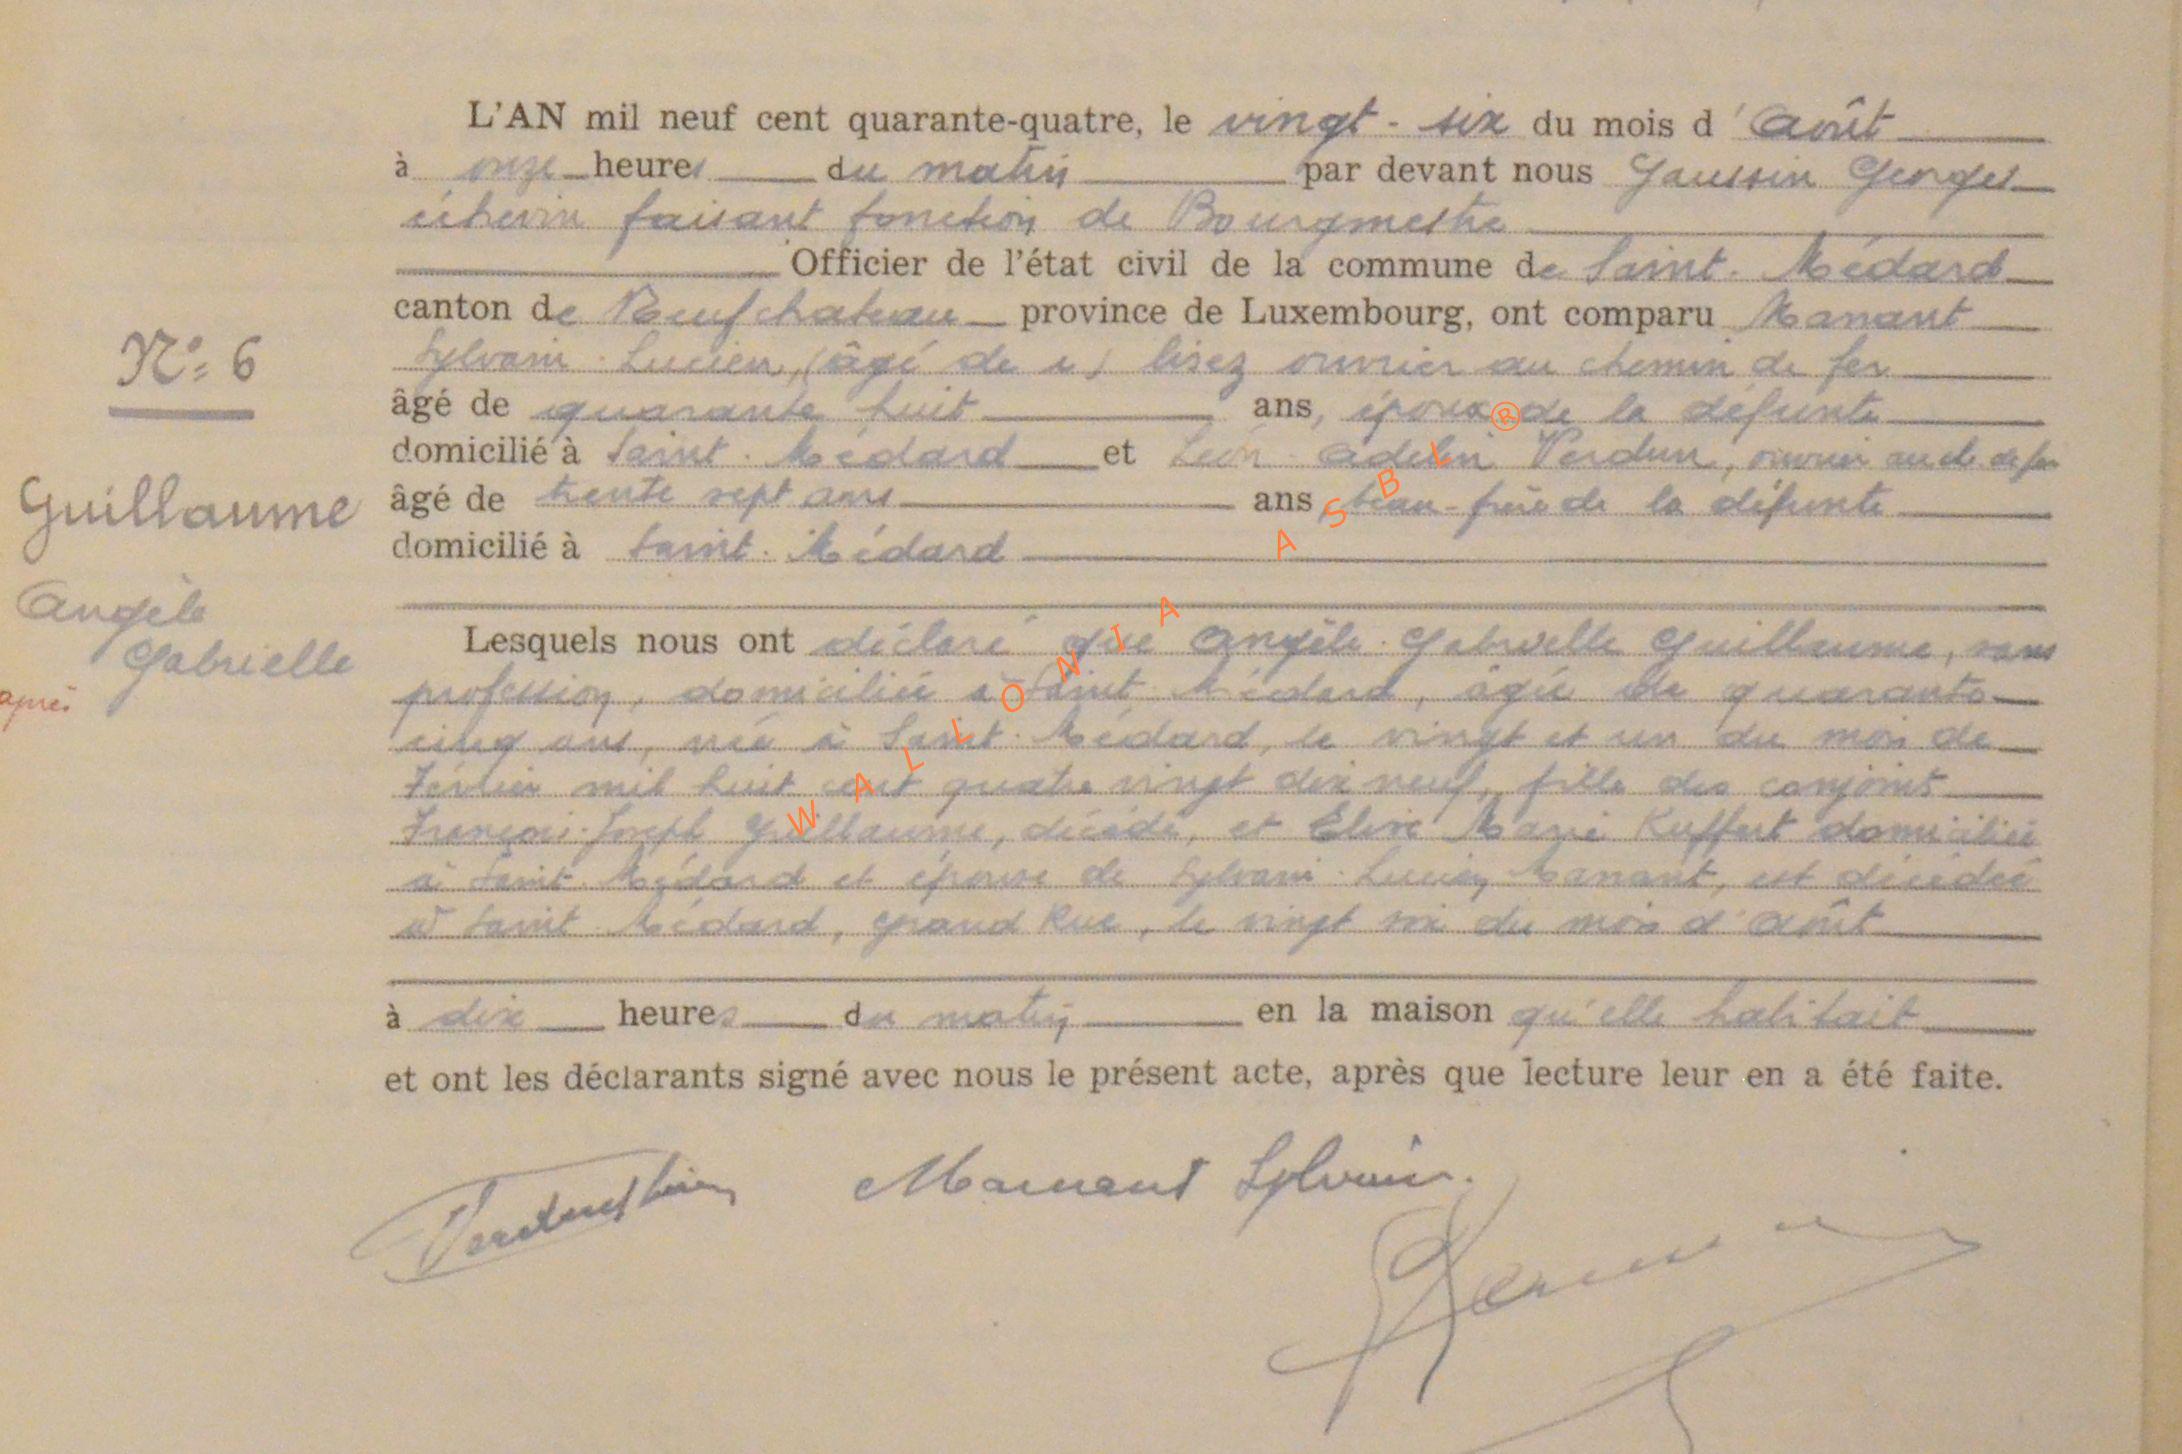 L'AN mil neuf cent quarante-quatre, le vingt-six du mois d'Août
à onze heures du matin par devant nous Gaussin Georges
échevin faisant fonction de Bourgmestre
Officier de l'état civil de la commune de Saint-Médard
canton de Neufchateau province de Luxembourg, ont comparu Manant
Sylvain Lucien, (âgé de u) lisez ouvrier au chemin de fer
âgé de quarante huit ans, époux de la défunte
domicilié à Saint-Médard et Léon Adelin Verdun, ouvrier au ch. de fer
âgé de trente sept ans ans, beau-frère de la défunte
domicilié à Saint-Médard
N°= 6
Guillaume
Angèle
Gabrielle
après
Lesquels nous ont déclaré que Angèle Gabrielle Guillaume, sans
profession, domiciliée à Saint Médard, âgée de quarante
cinq ans, née à Saint-Médard, le vingt et un du mois de
Février mil huit cent quatre vingt dix neuf, fille des conjoints
François-Joseph Guillaume, décédé, et Elise Marie domiciliée
à Saint-Médard et épouse de Sylvain Lucien Manant, est décédée
à Saint-Médard, Grand Rue, le vingt six du mois d'Août
à dix heures du matin en la maison qu'elle habitait
et ont les déclarants signé avec nous le présent acte, après que lecture leur en a été faite.
Manant Sylvain.
WALLONIA ASBL ®